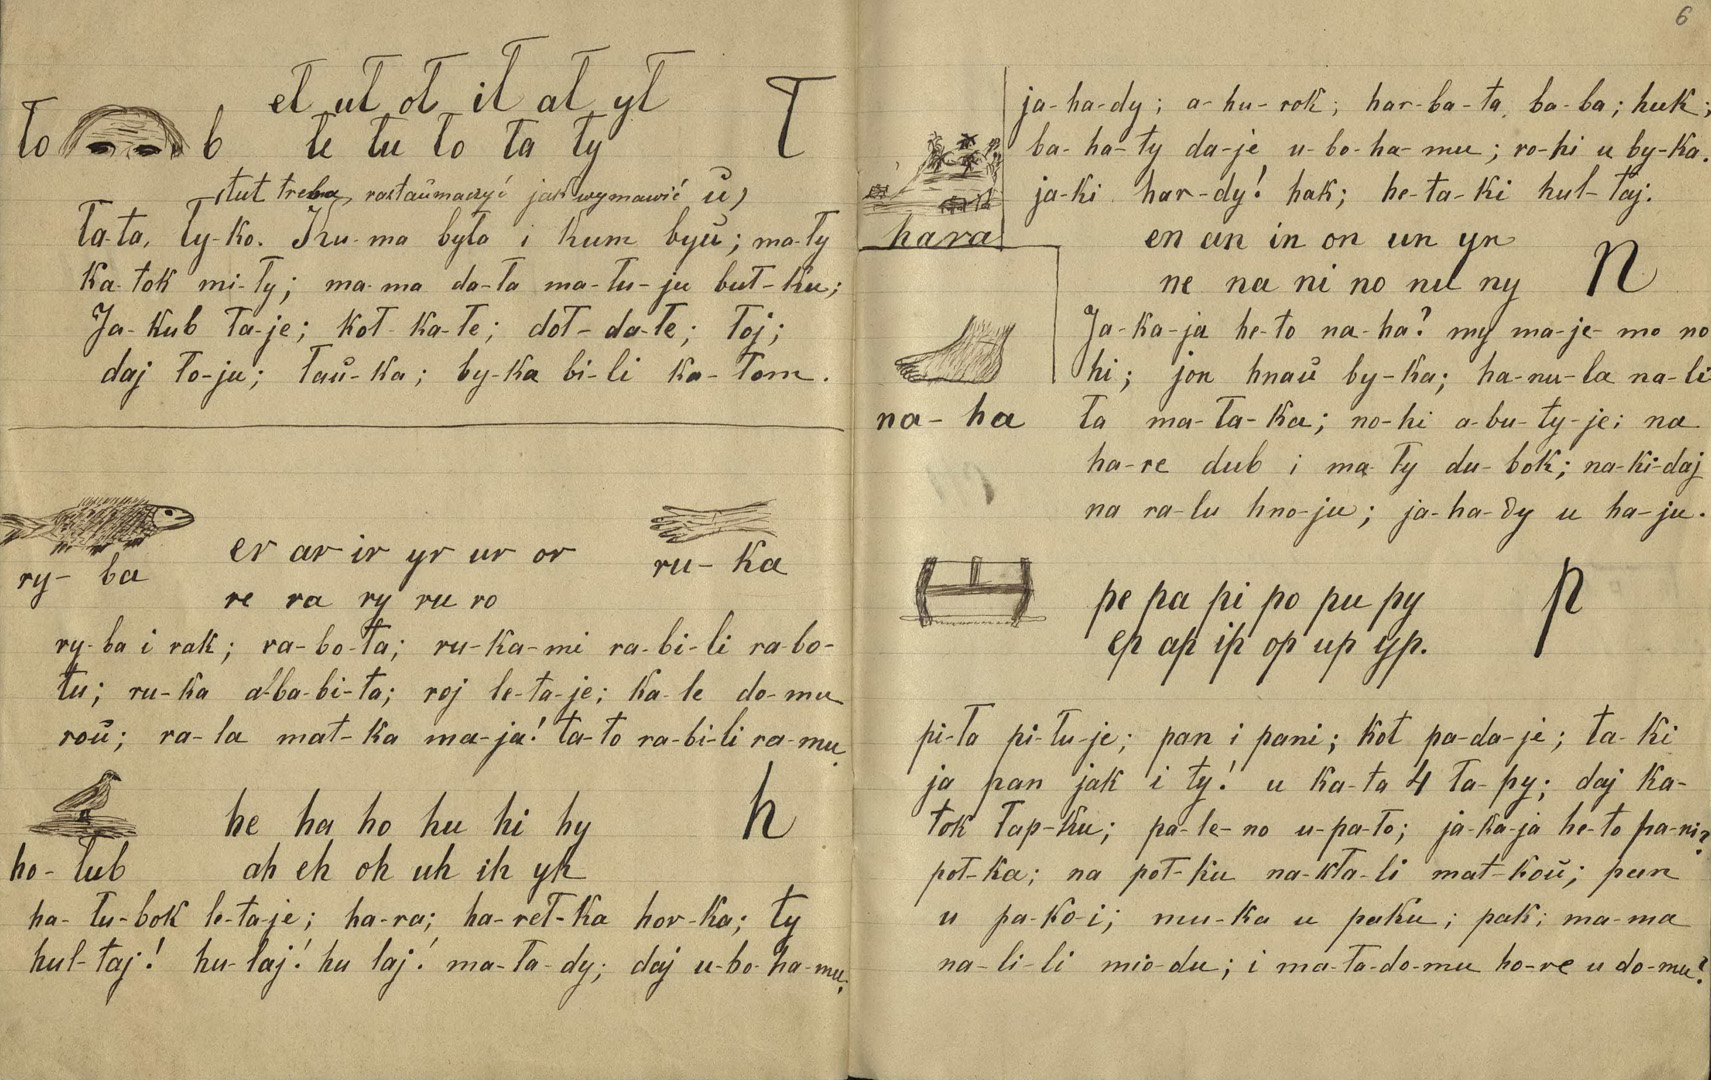 eł uł oł ił ał ył
ło b łe łu ło ła ły Ł
(tut treba, rastaŭmačyć jak wymawić ŭ)
Ła-ta, ły-ko. Ku-ma była i kum byŭ; ma-ły
ka-tok mi-ły; ma-ma da-ła ma-łu-ju buł-ku;
Ja-kub ła-je; koł ka-łe; doł-da-łe; łoj;
daj ło-ju; łaŭ-ka; by-ka bi-li ko-łom.
er ar ir yr ur or
ry-ba ru-ka
re ra ry ru ro
ry-ba i rak; ra-bo-ta; ru-ka-mi ra-bi-li ra-bo-
tu; ru-ka ad-ba-bi-ta; roj le-ta-je; ka-le do-mu
roŭ; ra-la mat-ka ma-ja! ta-to ra-bi-li ra-mu.
he ha ho hu hi hy h
ho-lub ah eh oh uh ih yh
ha-łu-bok le-ta-je; ha-ra; ha-reł-ka hor-ka; ty
hul-taj! hu-laj! hu laj! ma-ła-dy; daj u-bo-ha-mu;
6
ja-ha-dy; a-hu-rok; har-ba-ta, ba-ba; huk;
ba-ha-ty da-je u-bo-ha-mu; ro-hi u by-ka.
ja-ki har-dy! hak; he-ta-ki hul-taj.
hara en an in on un yn
ne na ni no nu ny n
Ja-ka-ja he-to na-ha? my ma-je-mo no
hi; jon hnaŭ by-ka; ha-nu-la na-li
na-ha ła ma-ła-ka; no-hi a-bu-ty-je; na
ha-re dub i ma-ły du-bok; na-ki-daj
na ra-lu hno-ju; ja-ha-dy u ha-ju.
pe pa pi po pu py p
ep ap ip op up yp.
pi-ła pi-łu-je; pan i pani; kot pa-da-je; ta-ki
ja pan jak i ty! u ka-ta 4 ła-py; daj ka-
tok łap-ku; pa-le-no u-pa-ło; ja-ka-ja he-to pa-ni?
poł-ka; na poł-ku na-kła-li mat-koŭ; pan
u pa-ko-i; mu-ka u paku; pak; ma-ma
na-li-li mio-du; i ma-ła-do-mu ho-re u do-mu?